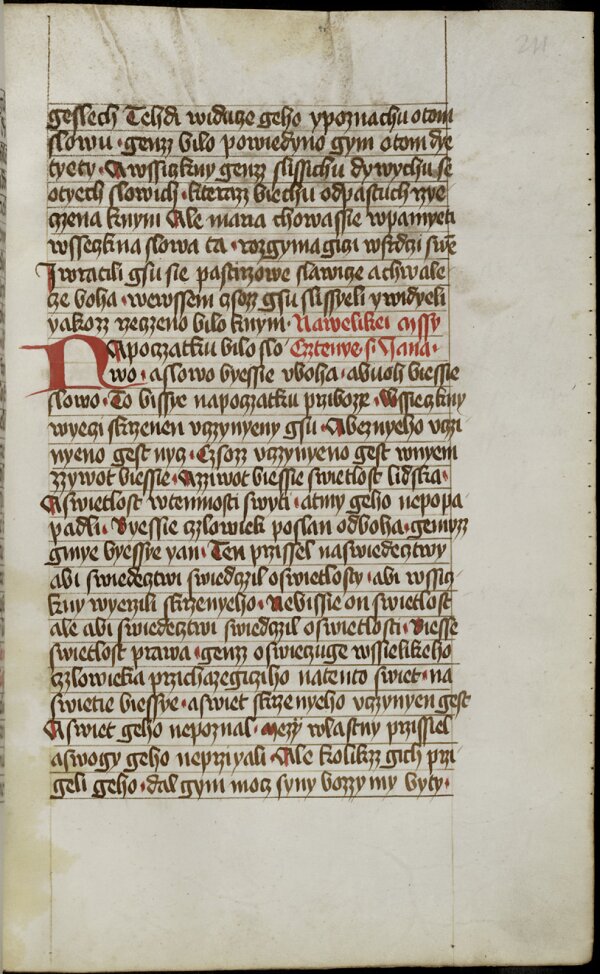 211
geslech Tehdi widucze geho ypoznachu otom
slowu · genzz bilo powiedyno gym otom dye
tyety · Awssiczkny genzz slissichu dywychu se
otyech slowich · kterazz biechu odpastuch rzye
czena knym Ale maria chowassie wpamyeti
wsseczkna slowa ta · rozgymagiczi wsrdczi swe
I wratili gsu sie pastirzowe slawicze a chwale
cze boha · wewssem czsozz gsu slissyeli y widyeli
yakozz rzeczeno bilo knym · Nawelikei mssy
NApoczatku bilo slo Cztenye · s · Jana ·
wo · a slowo byessie vboha · abuoh biessie
slowo · To bissye napoczatku przibozze · Wssieczkny
wyeczi skrzenen vczynyeny gsu · Abeznyeho vczi
nyeno gest nycz · Czsozz vczynyeno gest wnyem
zzywot biessie · Azziwot biessie swietlost lidska ·
Aswietlost wtemnosti swyti · atmy geho nepopa
padli · Byessie czlowiek poslan odboha · gemuzz
gmye byessye yan · Ten przissel naswiedecztwy
abi swiedecztwi swiedczil oswietlosty · abi wssicz
kny wyerzili skrzenyeho · Nebissie on swietlost
ale abi swiedecztwi swiedczil oswietlosti · Biesse
swietlost prawa · genzz oswieczuge wssielikeho
czlowieka prichazegicziho natento swiet · na
swietie biessye · aswiet skrzenyeho vczynyen gest
Aswiet geho nepoznal · Mezy wlastny przissiel
aswogy geho neprziyali · Ale kolikzz gich przi
geli geho · dal gym mocz syny bozzymy byty ·